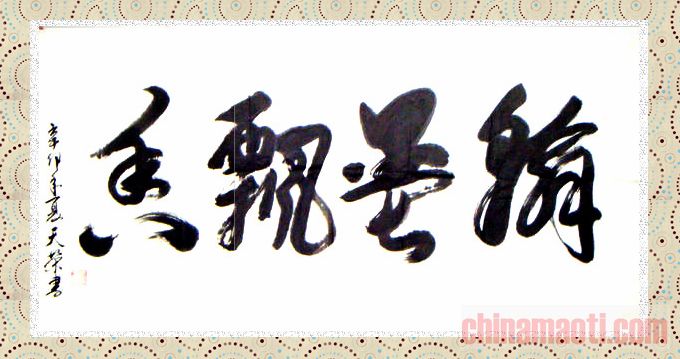 翰墨飄香
辛卯年夏天榮書
chinamaoti.com